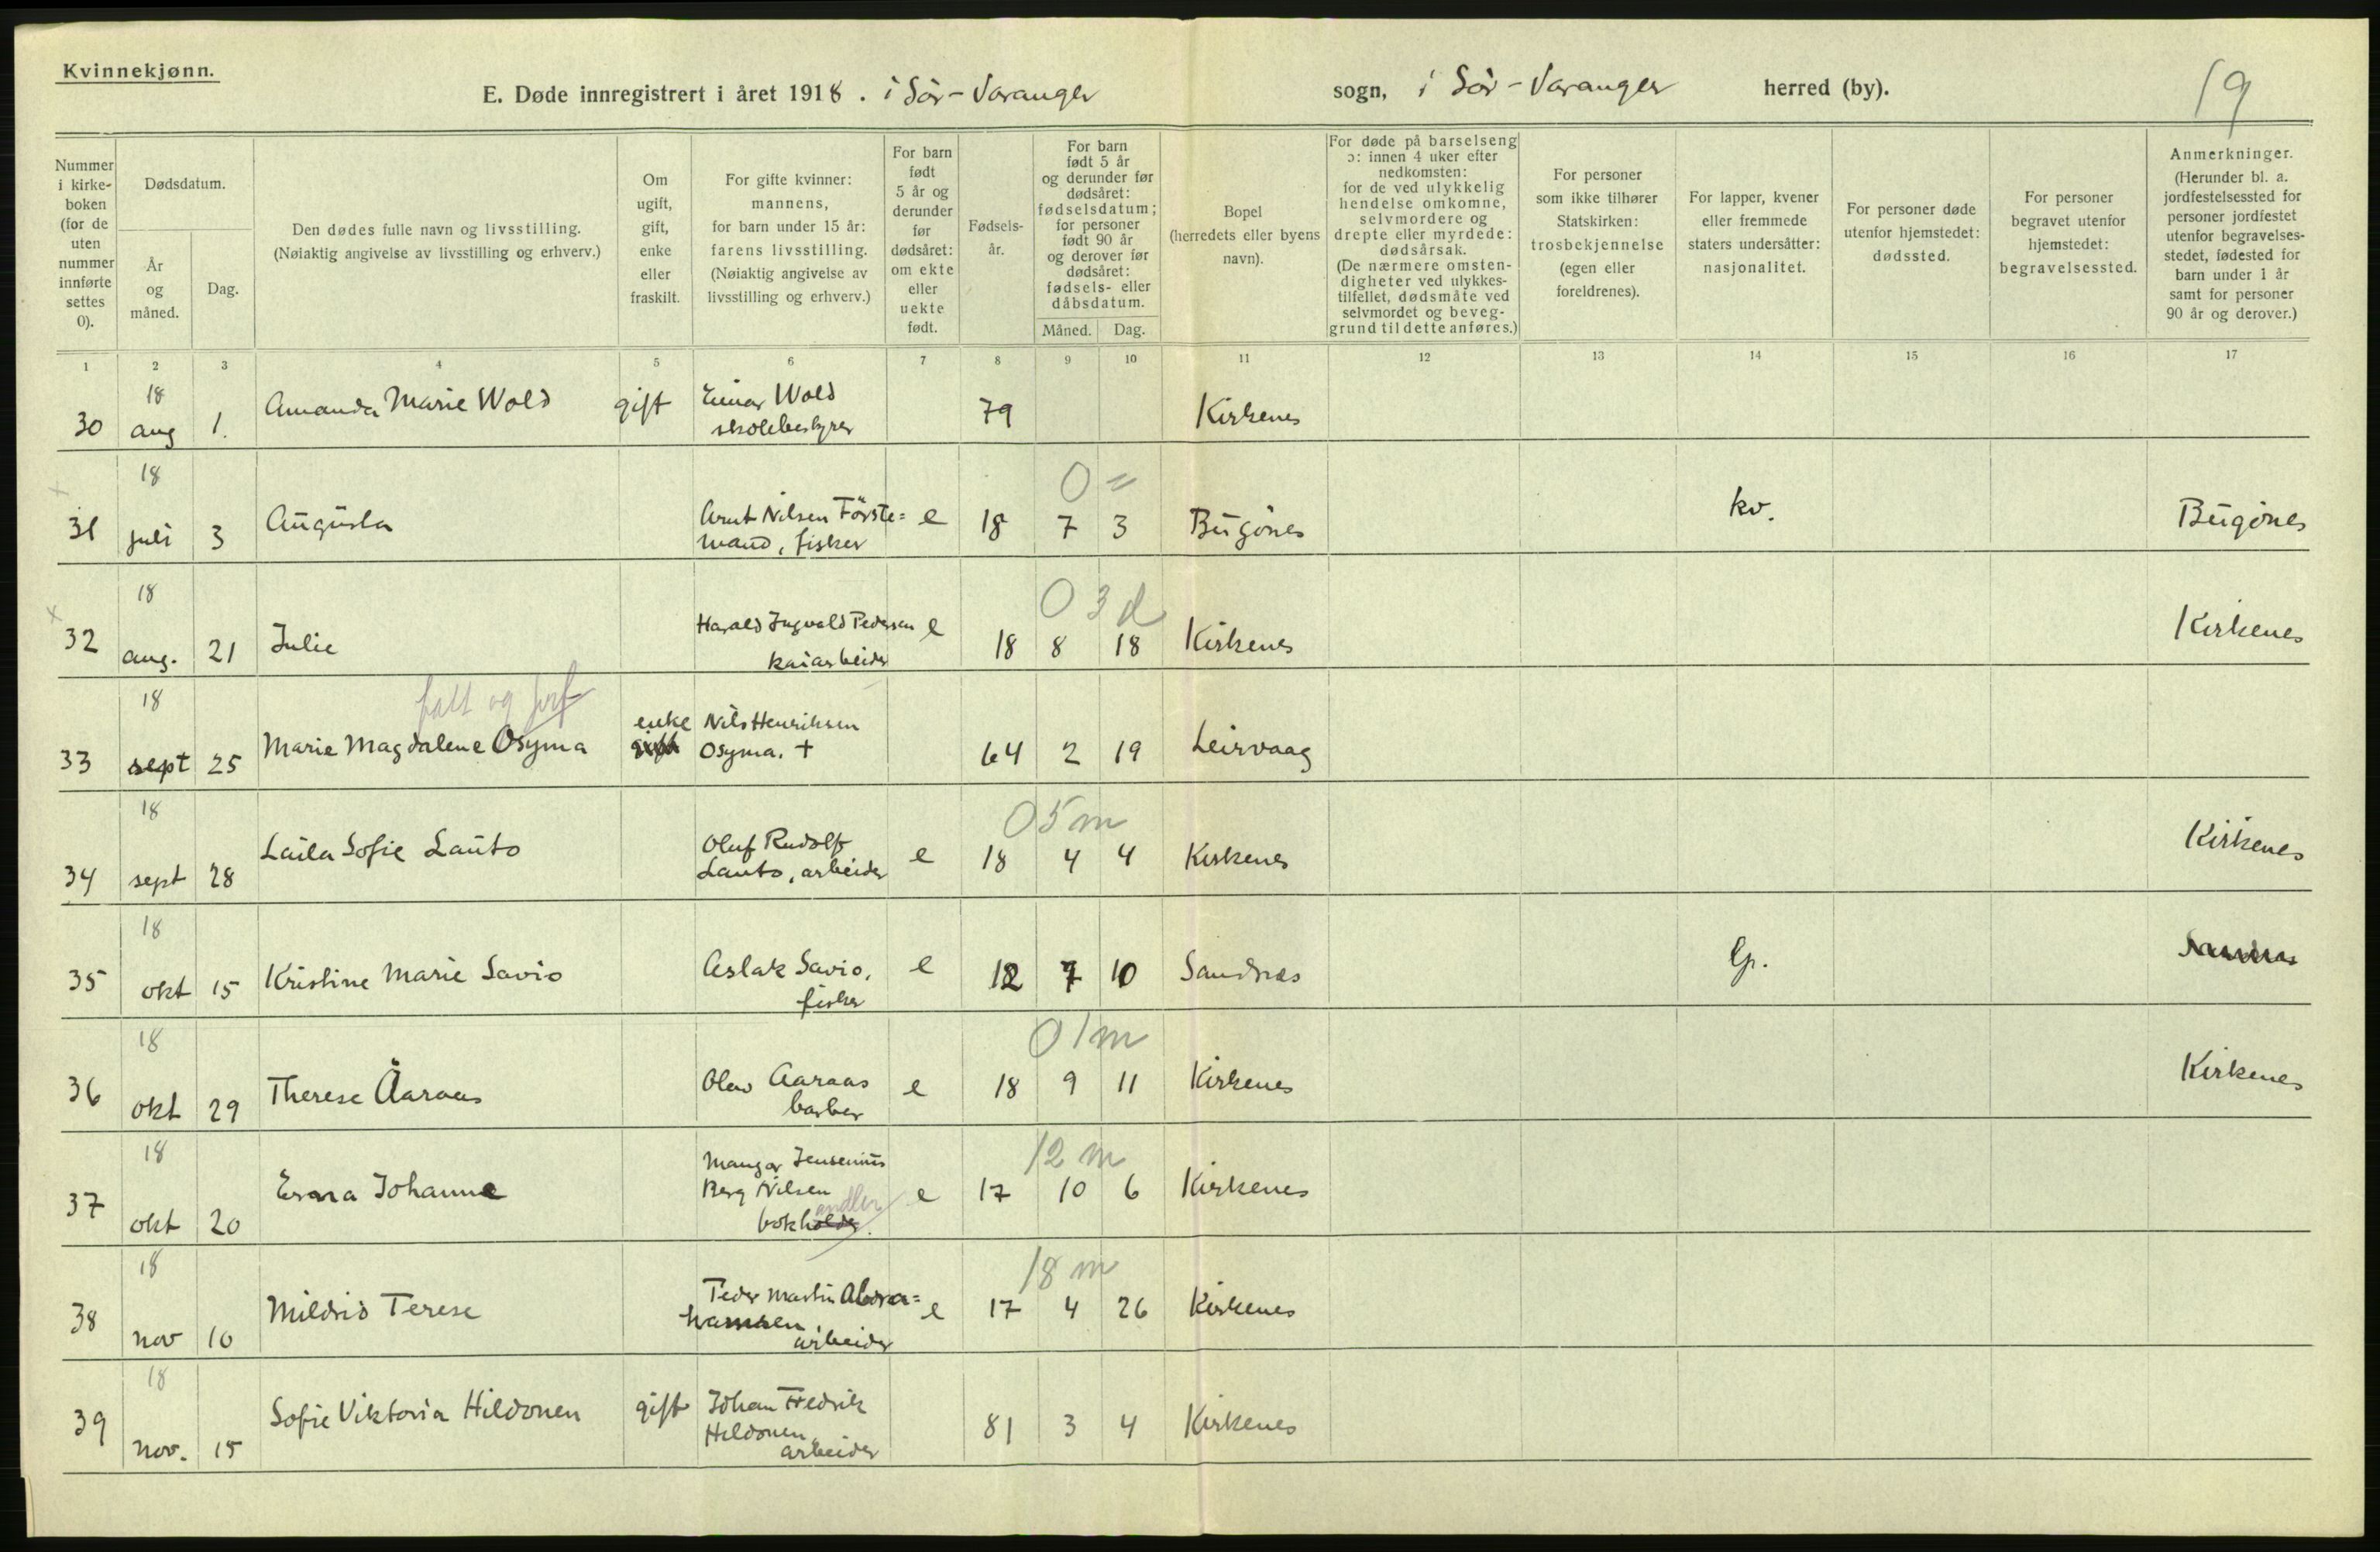 Kvinnekjønn.
E. Døde innregistrert i året 1918. i Sör-Varanger sogn, i Sör-Varanger herred (by).
19
Nummer i kirke-boken (for de uten nummer innførte settes 0).
Dødsdatum.
År og måned.
Dag.
Den dødes fulle navn og livsstilling.
(Nøiaktig angivelse av livsstilling og erhverv.)
Om ugift, gift, enke eller fraskilt.
For gifte kvinner: mannens, for barn under 15 år: farens livsstilling. (Nøiaktig angivelse av livsstilling og erhverv.)
For barn født 5 år og derunder før dødsåret: om ekte eller uekte født.
Fødsels-år.
For barn født 5 år og derunder før dødsåret: fødselsdatum; for personer født 90 år og derover før dødsåret: fødsels- eller dåbsdatum.
Måned. Dag.
Bopel (herredets eller byens navn).
For døde på barselseng ɔ: innen 4 uker efter nedkomsten: for de ved ulykkelig hendelse omkomne, selvmordere og drepte eller myrdede: dødsårsak. (De nærmere omsten-digheter ved ulykkes-tilfellet, dødsmåte ved selvmordet og beveg-grund til dette anføres.)
For personer som ikke tilhører Statskirken: trosbekjennelse (egen eller foreldrenes).
For lapper, kvener eller fremmede staters undersåtter: nasjonalitet.
For personer døde utenfor hjemstedet: dødssted.
For personer begravet utenfor hjemstedet: begravelsessted.
Anmerkninger. (Herunder bl. a. jordfestelsessted for personer jordfestet utenfor begravelses-stedet, fødested for barn under 1 år samt for personer 90 år og derover.)
1 2 3 4 5 6 7 8 9 10 11 12 13 14 15 16 17
30 18 aug 1. Amanda Marie Wold gift Einar Wold skolebestyrer 79 Kirkenes
31 18 juli 3 Augusta Arnt Nilsen Förste=mand, fisker e 18 0 = 7 3 Bugönes kv. Bugönes
32 18 aug. 21 Julie Harald Ingvald Pedersen kaiarbeider e 18 0 3 d 8 18 Kirkenes Kirkenes
33 18 sept 25 Marie Magdalene Osyma fatt og forf enke gift Nils Henriksen Osyma. + 64 2 19 Leirvaag
34 18 sept 28 Laila Sofie Lauto Oluf Rudolf Lauto, arbeider e 18 0 5 m 4 4 Kirkenes Kirkenes
35 18 okt 15 Kristine Marie Savio Aslak Savio, fisker e 12 7 10 Sandnes lp.
36 18 okt 29 Therese Aaraas Olav Aaraas barber e 18 0 1 m 9 11 Kirkenes Kirkenes
37 18 okt 20 Erna Johanne Mangor Jensenius Berg Nilsen bokholder. andler e 17 12 m 10 6 Kirkenes
38 18 nov 10 Mildrid Terese Peder Martin Abra=hamsen, arbeider e 17 18 m 4 26 Kirkenes
39 18 nov. 15 Sofie Viktoria Hildonen gift Johan Fredrik Hildonen arbeider 81 3 4 Kirkenes